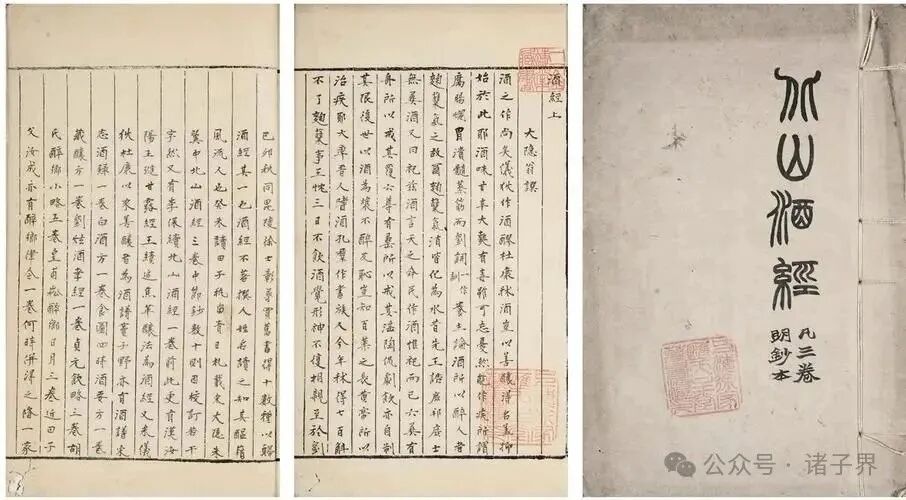 北山酒經
凡三卷
明鈔本
酒經上
大隱翁譔
酒之作尚矣儀狄作酒醪杜康秫酒豈以善釀得名蓋抑
始於此耶酒味甘辛大熱有毒雖可忘憂然能作疾所謂
腐腸爛胃潰髓蒸筋而劉詞一作訓養生論酒所以醉人者
麴糵氣之故爾麴糵氣消皆化為水昔先王誥庶邦庶士
無彝酒又曰祀茲酒言天之命民作酒惟祀而已六彝有
舟所以戒其覆六尊有罍所以戒其淫陶侃劇飲亦自制
其限後世以酒為漿不醉反恥豈知百藥之長黃帝所以
治疾耶大率晉人嗜酒孔羣作書族人今年秫得七百斛
不了麴糵事王忱三日不飲酒覺形神不復相親至於劉
己卯秋同毘陵徐士彰尋買舊書得十數種以歸
酒經其一也酒經不著撰人姓名讀之知其醞藉
風流人也癸未讀田子秇留青日札載宋大隱朱
翼中北山酒經三卷中節鈔數十則因校訂若干
字然又有李保續北山酒經一卷前此更有漢汝
陽王璡甘露經王績追焦革釀法為酒經又采儀
狄杜康以來善釀者為酒譜竇子野亦有酒譜宋
志酒錄一卷白酒方一卷食圖四時酒要方一卷
藏釀方一卷劉炫酒孝經一卷貞元飲略三卷胡
氏醉鄉小略五卷皇甫崧醉鄉日月三卷近田子
父汝成亦有醉鄉律令一卷何時併得之隆一家
公众号 · 诸子界